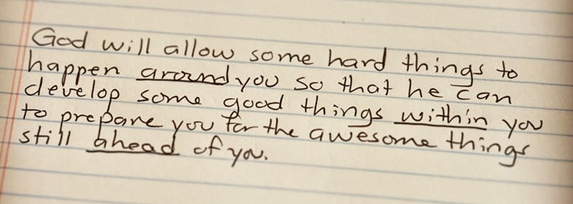 God will allow some hard things to
happen around you so that he can
develop some good things within you
to prepare you for the awesome things
still ahead of you.